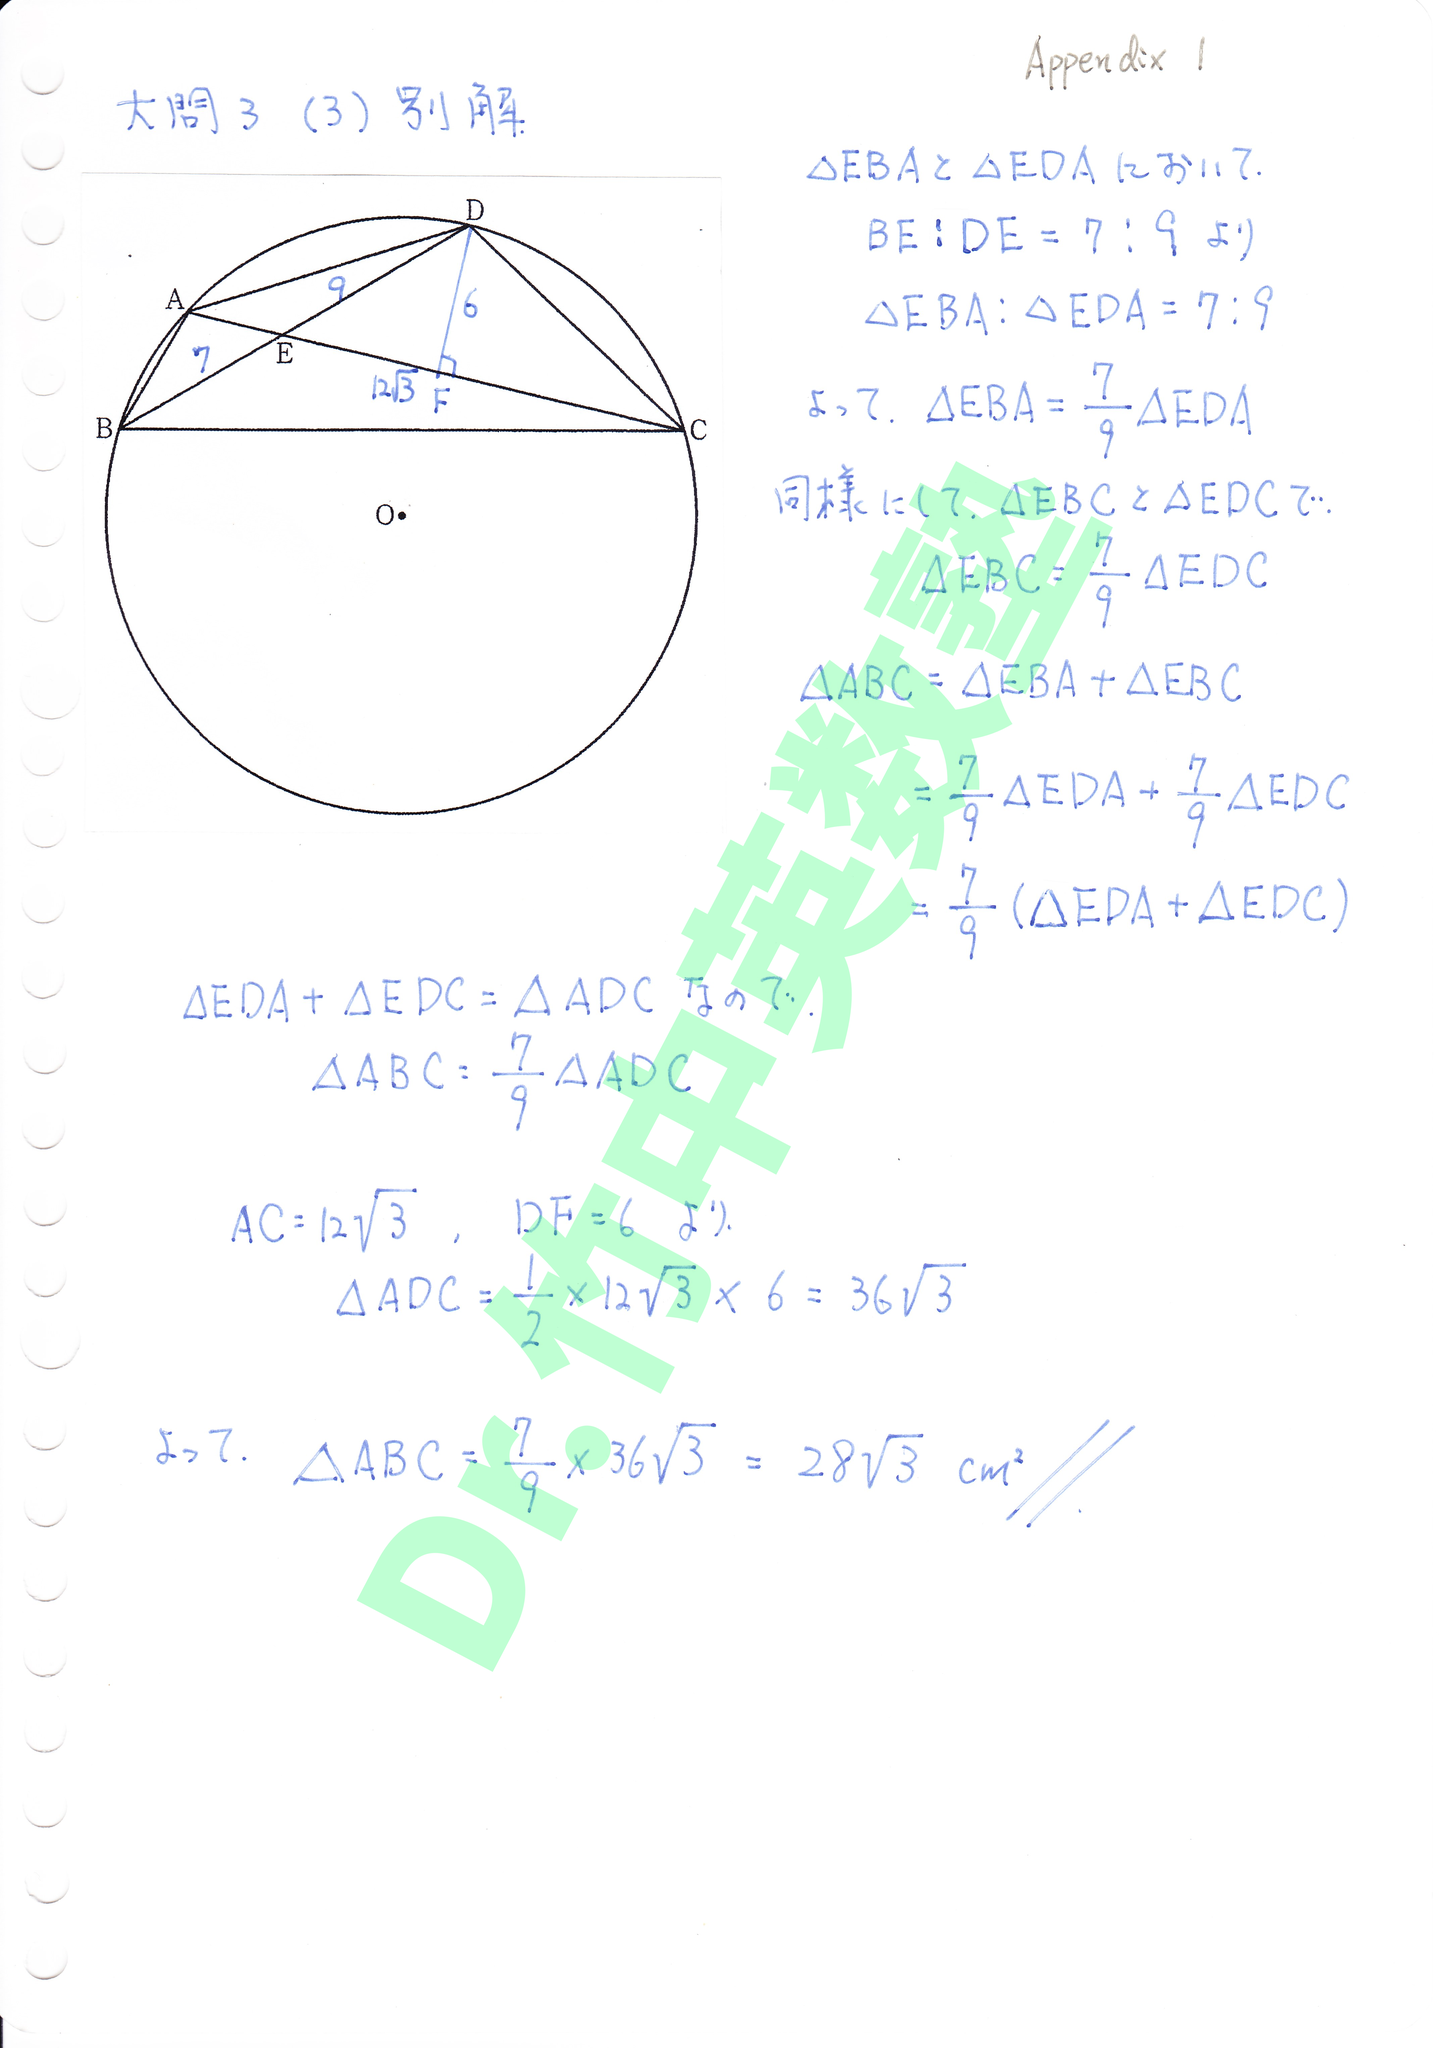 Appendix 1
大問3 (3) 別解
D
A
9
6
7
E
12√3
F
B
C
O
△EBAと△EDAにおいて、
BE:DE=7:9 より
△EBA:△EDA=7:9
よって、△EBA=7/9△EDA
同様にして、△EBCと△EDCで、
△EBC=7/9△EDC
△ABC=△EBA+△EBC
=7/9△EDA+7/9△EDC
=7/9(△EDA+△EDC)
△EDA+△EDC=△ADC なので、
△ABC=7/9△ADC
AC=12√3, DF=6 より、
△ADC=1/2×12√3×6=36√3
よって、△ABC=7/9×36√3=28√3 cm²
Dr.竹中英数塾